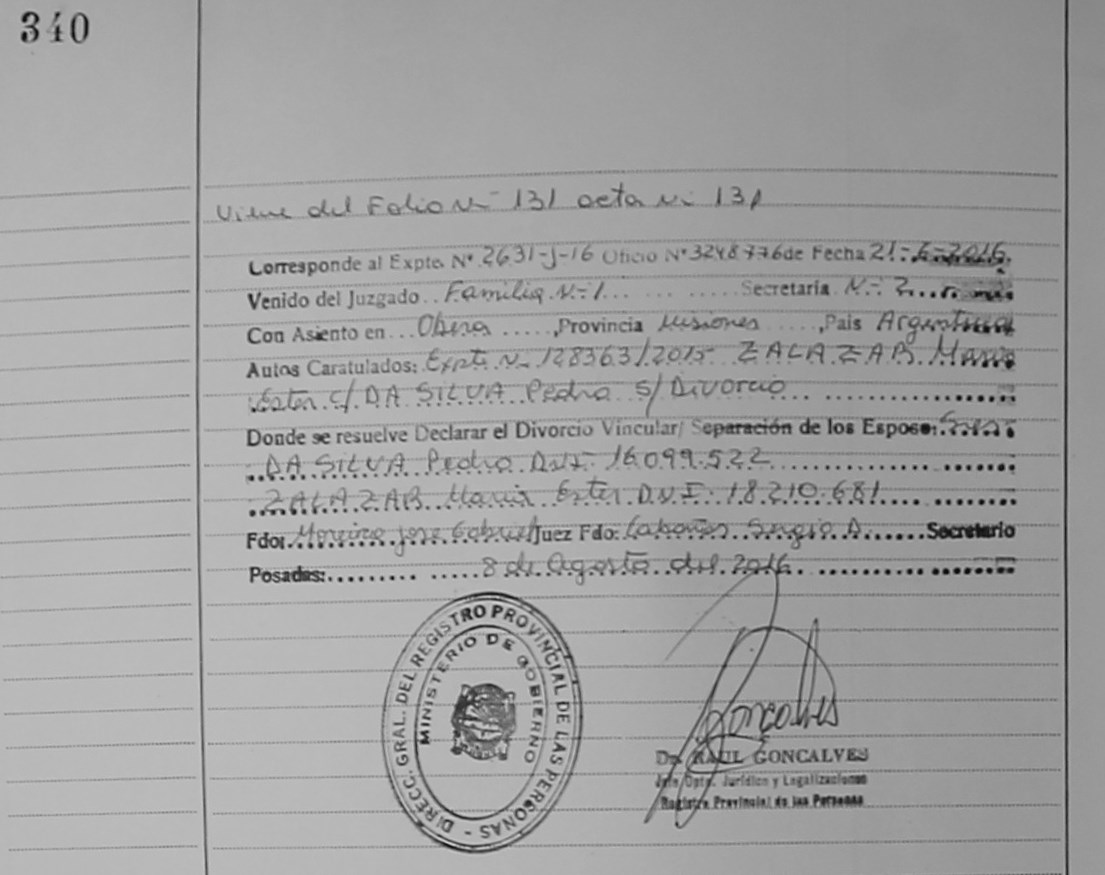 340
Viene del Folio Nº 131 acta Nº 131
Corresponde al Expte. Nº 2631-J-16 Oficio Nº 3248776 de Fecha 21-6-2016
Venido del Juzgado.. Familia Nº 1... ... ......Secretaría. Nº 2......
Con Asiento en...Oberá .....,Provincia Misiones ....,País Argentina
Autos Caratulados: Expte Nº 128363/2015 ZALAZAR María
Ester c/ DA SILVA Pedro s/ Divorcio
Donde se resuelve Declarar el Divorcio Vincular/ Separación de los Esposo:
DA SILVA Pedro D.N.I. 16.099.522
ZALAZAR María Ester D.N.I. 18.210.681
Fdo: Moreira José Gabriel Juez Fdo: Cabañas Sergio A. ......Secretario
Posadas:......... .....8 de Agosto del 2016
DIRECC. GRAL. DEL REGISTRO PROVINCIAL DE LAS PERSONAS -
MINISTERIO DE GOBIERNO
Goncalves
Dr. RAUL GONCALVES
Jefe Dpto. Jurídico y Legalizaciones
Registro Provincial de las Personas